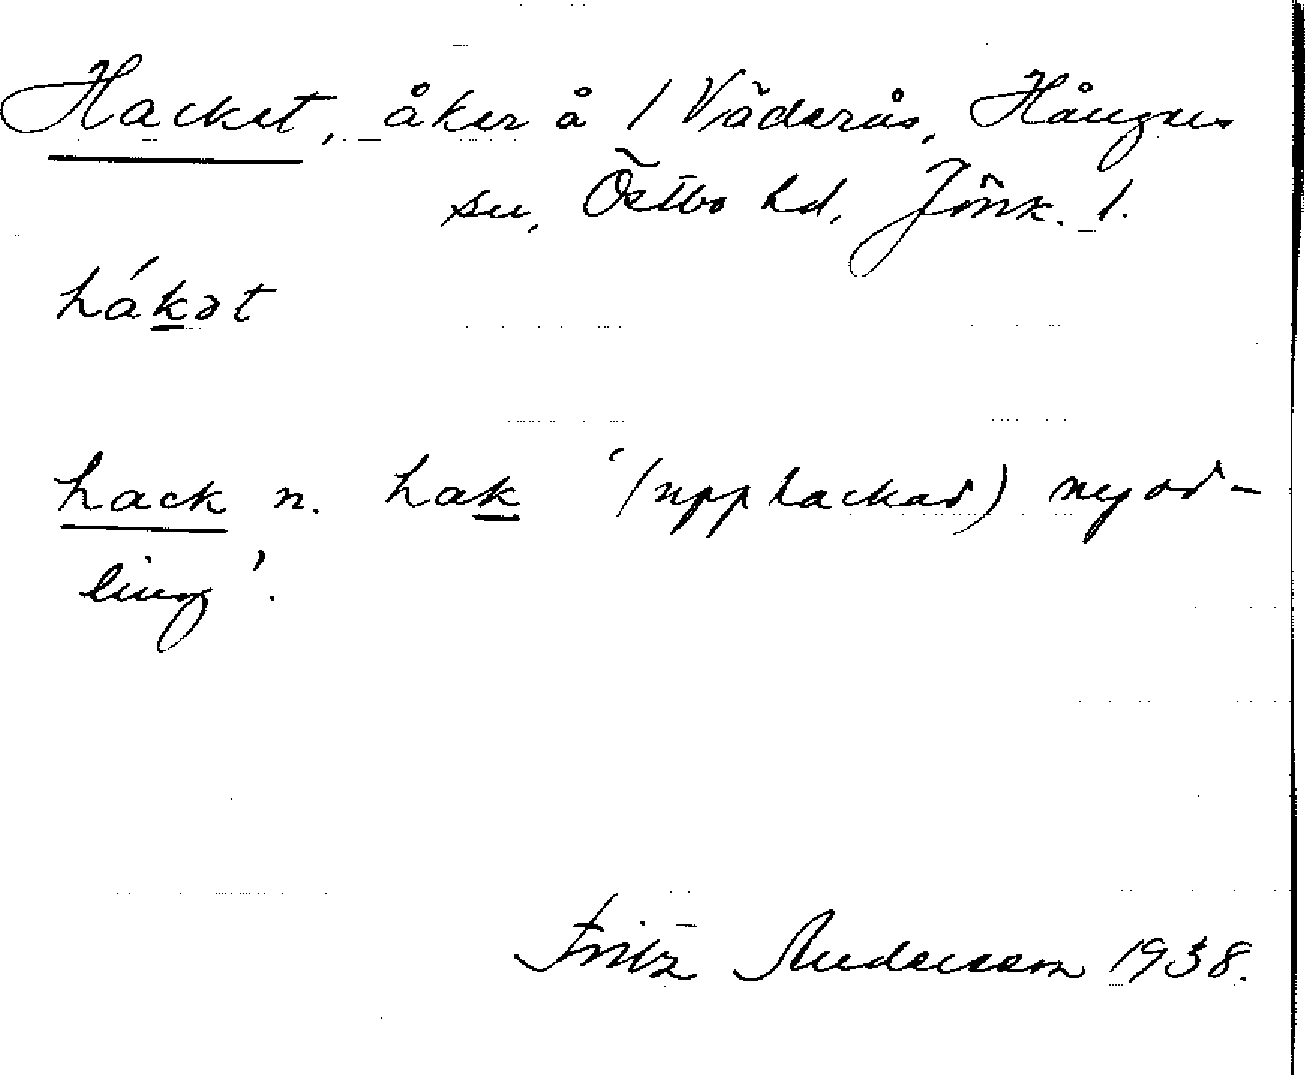 Hacket, åker å 1 Väderås, Hångers
sn, Östbo hd, Jönk. l.
hákət
hack n. hak ‘(upphackad) nyod-
ling’.
Fritz Andersson 1938.